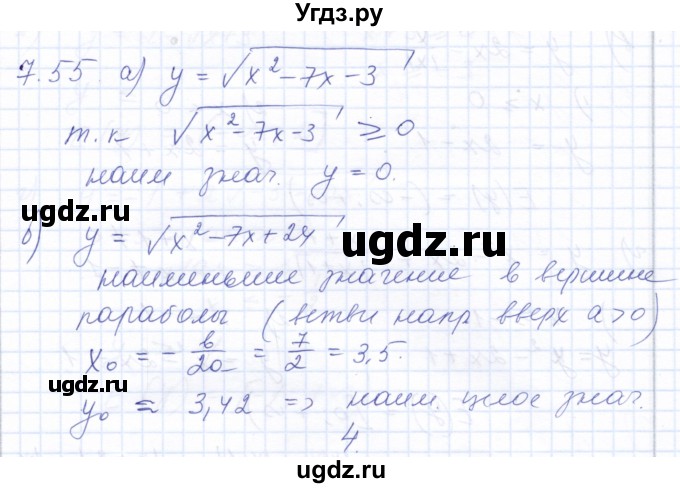 Угдз.ру
7.55 а) y = √(x² - 7x - 3)
т.к √(x² - 7x - 3) ≥ 0
наим знач. y = 0.
ugdz.ru
ugdz.ru
б) y = √(x² - 7x + 24)
наименьшие значение в вершине
параболы (ветви напр вверх a > 0)
ugdz.ru
x₀ = - b/2a = 7/2 = 3,5.
ugdz.ru
y₀ = 3,42 => наим. целое знач.
4.
ugdz.ru
ugdz.ru